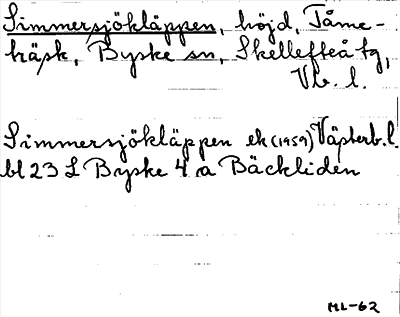 Simmersjökläppen, höjd, Tåme-
träsk, Byske sn, Skellefteå tg,
Vb. l.
Simmersjökläppen ek (1959) Västerb. l.
bl 23 L Byske 4 a Bäckliden
ML-62